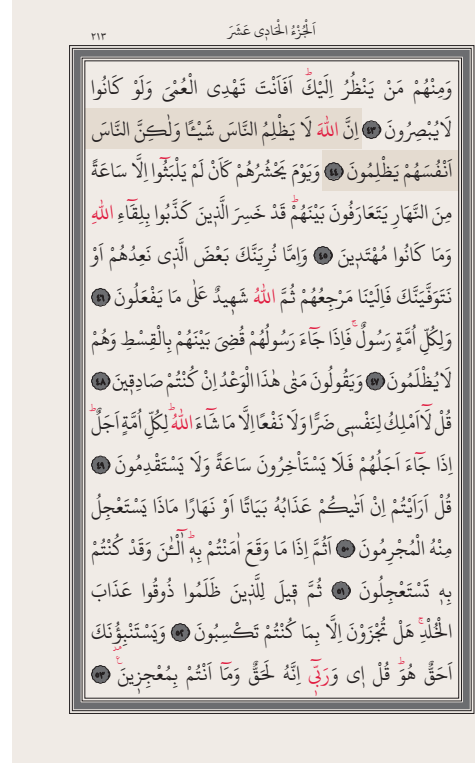 اَلْجُزْءُ الْحَادِى عَشَرَ
٢١٣
وَمِنْهُمْ مَنْ يَنْظُرُ اِلَيْكَۜ اَفَاَنْتَ تَهْدِى الْعُمْىَ وَلَوْ كَانُوا
لَايُبْصِرُونَ ﴿٤٣﴾ اِنَّ اللّٰهَ لَا يَظْلِمُ النَّاسَ شَيْـًٔا وَلٰكِنَّ النَّاسَ
اَنْفُسَهُمْ يَظْلِمُونَ ﴿٤٤﴾ وَيَوْمَ يَحْشُرُهُمْ كَاَنْ لَمْ يَلْبَثُٓوا اِلَّا سَاعَةً
مِنَ النَّهَارِ يَتَعَارَفُونَ بَيْنَهُمْۜ قَدْ خَسِرَ الَّذٖينَ كَذَّبُوا بِلِقَٓاءِ اللّٰهِ
وَمَا كَانُوا مُهْتَدٖينَ ﴿٤٥﴾ وَاِمَّا نُرِيَنَّكَ بَعْضَ الَّذٖى نَعِدُهُمْ اَوْ
نَتَوَفَّيَنَّكَ فَاِلَيْنَا مَرْجِعُهُمْ ثُمَّ اللّٰهُ شَهٖيدٌ عَلٰى مَا يَفْعَلُونَ ﴿٤٦﴾
وَلِكُلِّ اُمَّةٍ رَسُولٌۚ فَاِذَا جَٓاءَ رَسُولُهُمْ قُضِىَ بَيْنَهُمْ بِالْقِسْطِ وَهُمْ
لَايُظْلَمُونَ ﴿٤٧﴾ وَيَقُولُونَ مَتٰى هٰذَا الْوَعْدُ اِنْ كُنْتُمْ صَادِقٖينَ ﴿٤٨﴾
قُلْ لَٓا اَمْلِكُ لِنَفْسٖى ضَرًّا وَلَا نَفْعًا اِلَّا مَا شَٓاءَ اللّٰهُۜ لِكُلِّ اُمَّةٍ اَجَلٌۜ
اِذَا جَٓاءَ اَجَلُهُمْ فَلَا يَسْتَاْخِرُونَ سَاعَةً وَلَا يَسْتَقْدِمُونَ ﴿٤٩﴾
قُلْ اَرَاَيْتُمْ اِنْ اَتٰيكُمْ عَذَابُهُ بَيَاتًا اَوْ نَهَارًا مَاذَا يَسْتَعْجِلُ
مِنْهُ الْمُجْرِمُونَ ﴿٥٠﴾ اَثُمَّ اِذَا مَا وَقَعَ اٰمَنْتُمْ بِهٖۜ آٰلْـٰٔنَ وَقَدْ كُنْتُمْ
بِهٖ تَسْتَعْجِلُونَ ﴿٥١﴾ ثُمَّ قٖيلَ لِلَّذٖينَ ظَلَمُوا ذُوقُوا عَذَابَ
الْخُلْدِۚ هَلْ تُجْزَوْنَ اِلَّا بِمَا كُنْتُمْ تَكْسِبُونَ ﴿٥٢﴾ وَيَسْتَنْبِؤُ۫نَكَ
اَحَقٌّ هُوَۜ قُلْ اٖى وَرَبّٖٓى اِنَّهُ لَحَقٌّ وَمَٓا اَنْتُمْ بِمُعْجِزٖينَ ﴿٥٣﴾